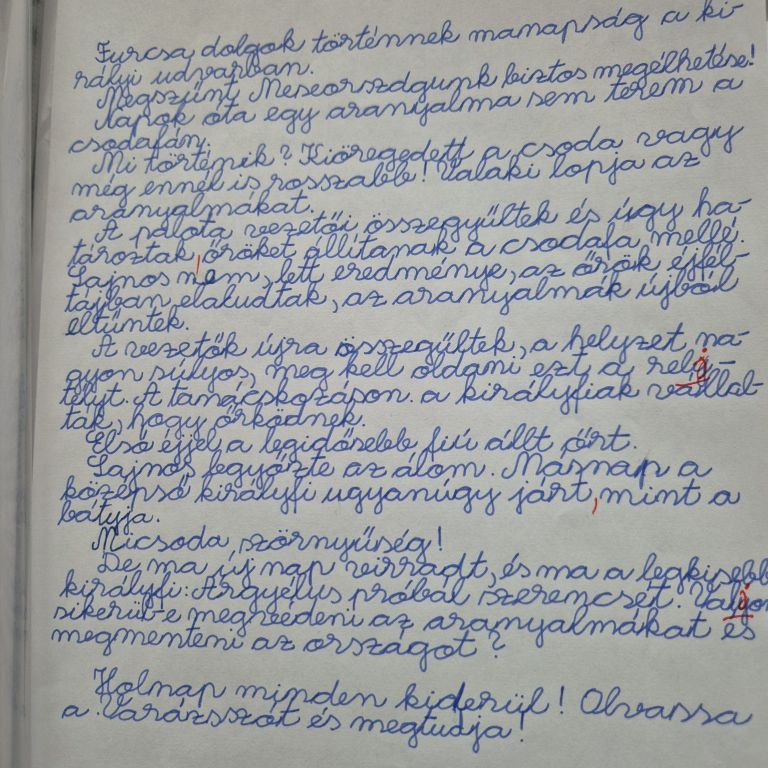 Furcsa dolgok történnek manapság a ki-
rályi udvarban.
Megszűnt Meseországunk biztos megélhetése!
Napok óta egy aranyalma sem terem a
csodafán.
Mi történik? Kiöregedett a csoda vagy
még ennél is rosszabb! Valaki lopja az
aranyalmákat.
A palota vezetői összegyűltek és úgy ha-
tároztak, őröket állítanak a csodafa mellé.
Sajnos nem lett eredménye, az őrök éjfél-
tájban elaludtak, az aranyalmák újból
eltűntek.
A vezetők újra összegűltek, a helyzet na-
gyon súlyos, meg kell oldani ezt a rej-
télyt. A tanácskozáson a királyfiak vállal-
ták, hogy őrködnek.
Első éjjel a legidősebb fiú állt őrt.
Sajnos legyőzte az álom. Másnap a
középső királyfi ugyanúgy járt, mint a
bátyja.
Micsoda szörnyűség!
De ma új nap virradt, és ma a legkisebb
királyfi: Argyélus próbál szerencsét. Vajon
sikerül-e megvédeni az aranyalmákat és
megmenteni az országot?
Holnap minden kiderül! Olvassa
a Varázsszót és megtudja!